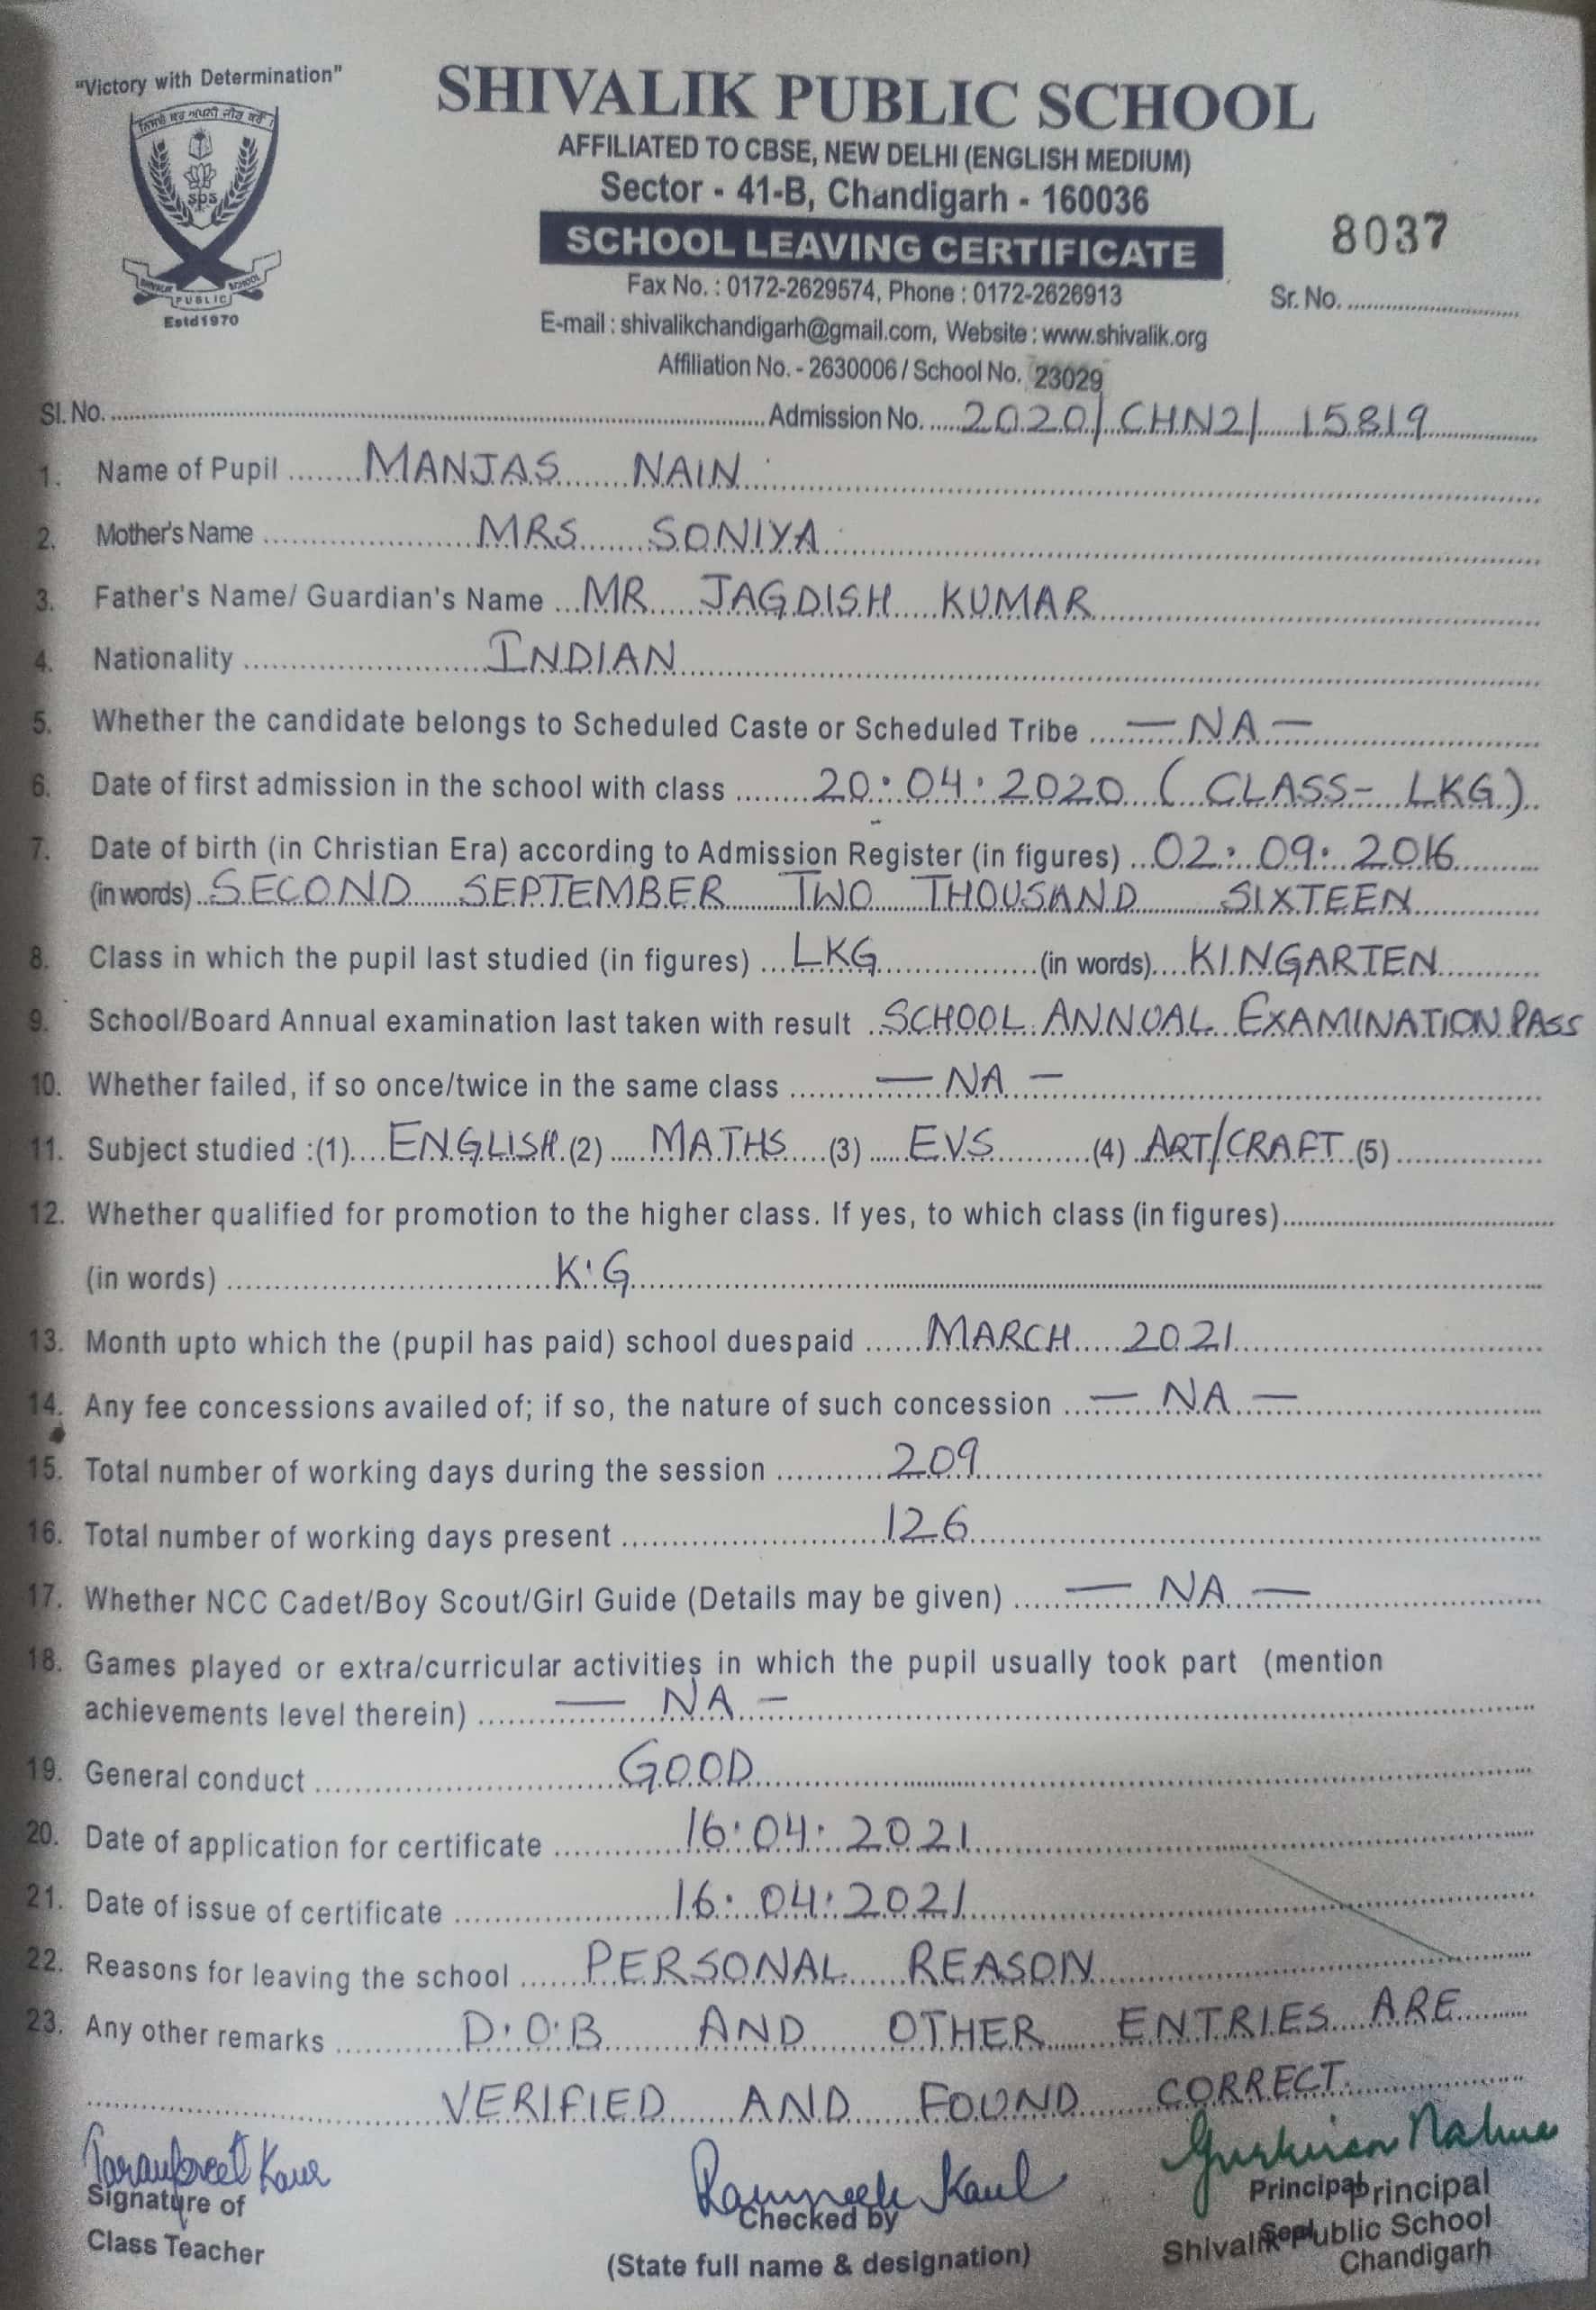 "Victory with Determination"
SHIVALIK PUBLIC SCHOOL
AFFILIATED TO CBSE, NEW DELHI (ENGLISH MEDIUM)
Sector - 41-B, Chandigarh - 160036
SCHOOL LEAVING CERTIFICATE
8037
sps
SHIVALIK PUBLIC SCHOOL
Estd 1970
Fax No. : 0172-2629574, Phone : 0172-2626913
Sr. No. ........
E-mail : shivalikchandigarh@gmail.com, Website : www.shivalik.org
Affiliation No. - 2630006 / School No. 23029
Sl. No. ........ Admission No. 2020/CHN2/ 15819
1. Name of Pupil MANJAS NAIN
2. Mother's Name MRS SONIYA
3. Father's Name/ Guardian's Name MR JAGDISH KUMAR
4. Nationality INDIAN
5. Whether the candidate belongs to Scheduled Caste or Scheduled Tribe — NA —
6. Date of first admission in the school with class 20.04.2020 ( CLASS- LKG )
7. Date of birth (in Christian Era) according to Admission Register (in figures) 02.09.2016
(in words) SECOND SEPTEMBER TWO THOUSAND SIXTEEN
8. Class in which the pupil last studied (in figures) LKG (in words) KINGARTEN
9. School/Board Annual examination last taken with result SCHOOL ANNUAL EXAMINATION PASS
10. Whether failed, if so once/twice in the same class — NA —
11. Subject studied :(1) ENGLISH (2) MATHS (3) EVS (4) ART/CRAFT (5) ........
12. Whether qualified for promotion to the higher class. If yes, to which class (in figures) ........
(in words) K.G
13. Month upto which the (pupil has paid) school duespaid MARCH 2021
14. Any fee concessions availed of; if so, the nature of such concession — NA —
15. Total number of working days during the session 209
16. Total number of working days present 126
17. Whether NCC Cadet/Boy Scout/Girl Guide (Details may be given) — NA —
18. Games played or extra/curricular activities in which the pupil usually took part (mention
achievements level therein) — NA —
19. General conduct GOOD
20. Date of application for certificate 16.04.2021
21. Date of issue of certificate 16.04.2021
22. Reasons for leaving the school PERSONAL REASON
23. Any other remarks D.O.B AND OTHER ENTRIES ARE
VERIFIED AND FOUND CORRECT.
Taranpreet Kaur
Kaul
Signature of
Class Teacher
Checked by
(State full name & designation)
Principal
Seal
Principal
Shivalik Public School
Chandigarh